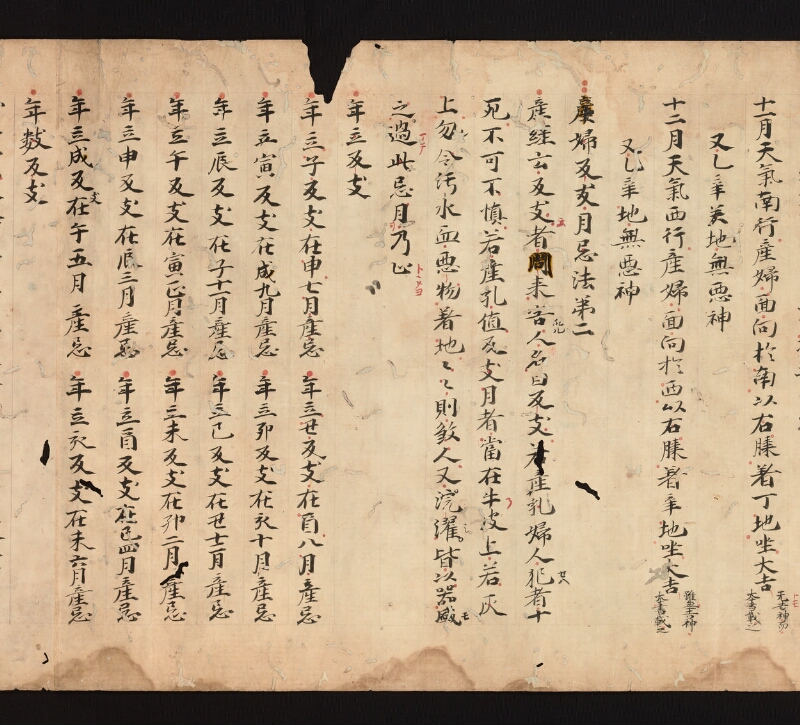 十一月天氣南行産婦面向於南以右膝着丁地坐大吉
又乙辛美地無惡神
十二月天氣西行産婦面向於西以右膝着辛地坐大吉
本書載之
又乙辛地無惡神
産婦反支月忌法第二
産經云反支者周来害人名曰反支若産乳婦人犯者十
死不可不慎若産乳值反支月者當在牛皮上若灰
上勿令污水血惡物着地々々則煞人又浣濯皆以器盛
之過此忌月乃止
年立反支
年立子反支在申七月産忌 年立丑反支在酉八月産忌
年立寅反支在戌九月産忌 年立卯反支在亥十月産忌
年立辰反支在子十一月産忌 年立巳反支在丑十二月産忌
年立午反支在寅正月産忌 年立未反支在卯二月産忌
年立申反支在辰三月産忌 年立酉反支在巳四月産忌
年立戌反支在午五月産忌 年立亥反支在未六月産忌
年数反支